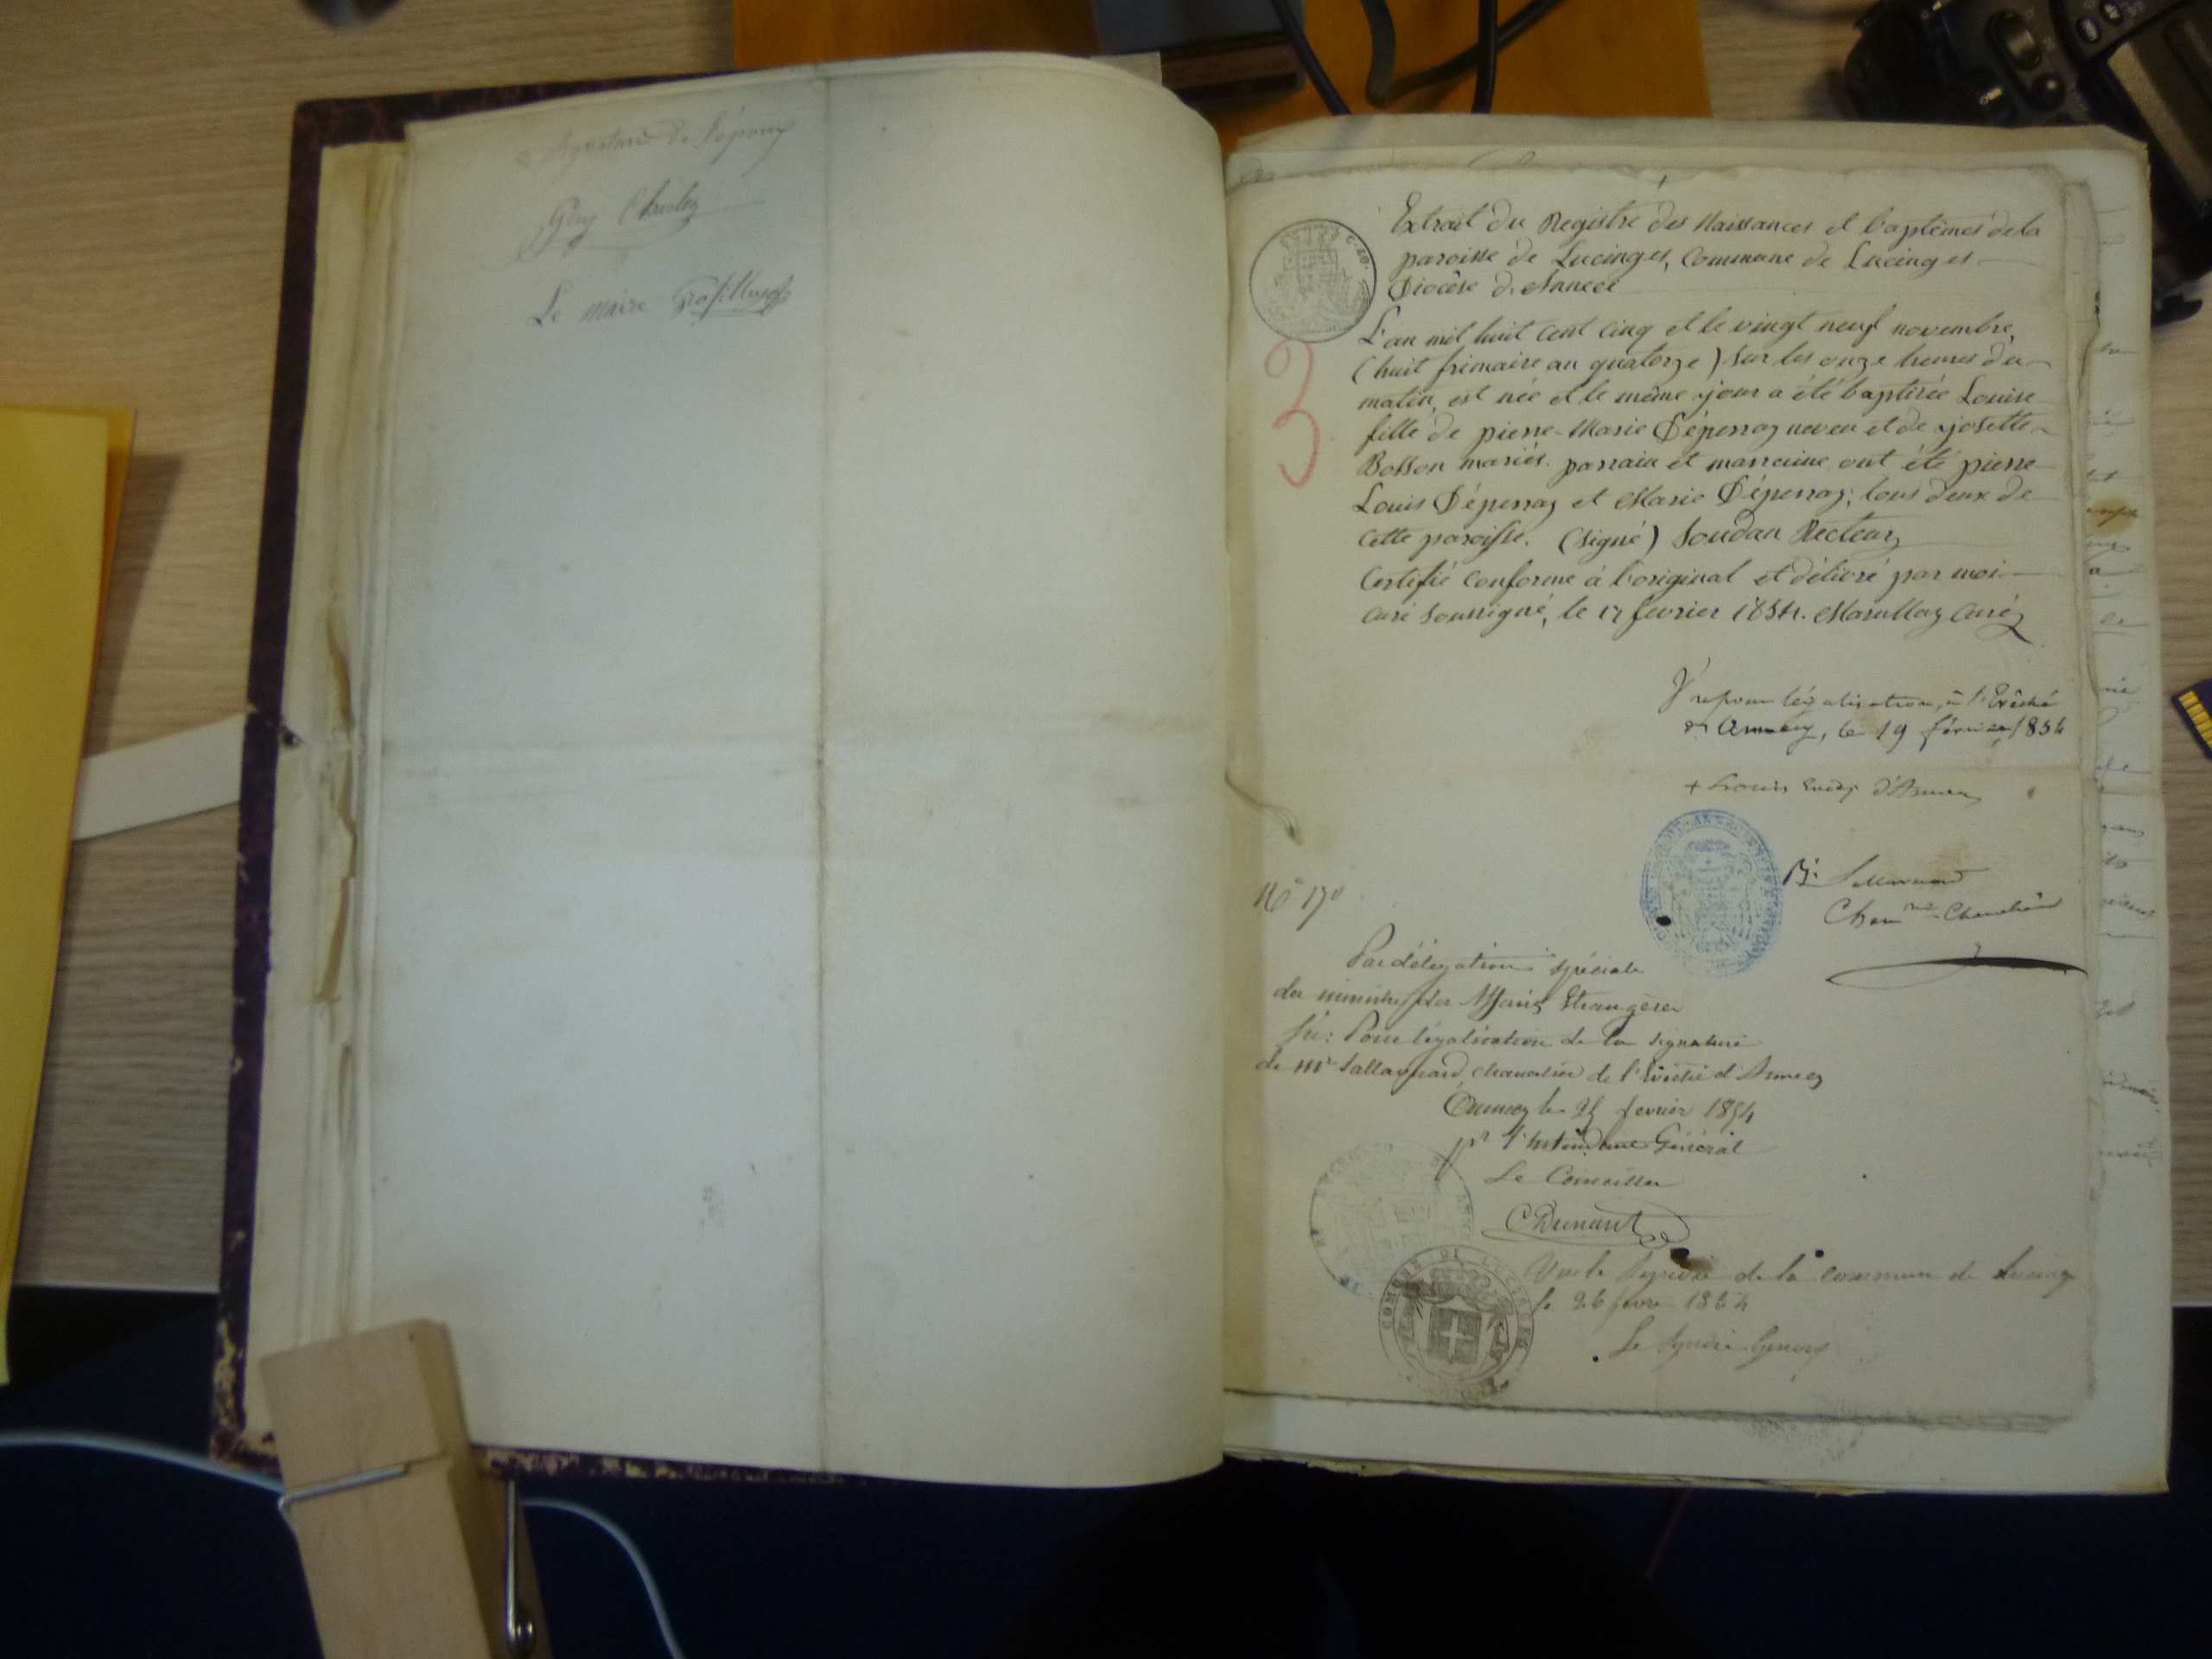 Signature de l'époux
Guy Charles
Le maire
Extrait du Registre des Naissances et baptêmes de la
paroisse de Lucinges, Commune de Lucinges
Diocèse d'Annecï
L'an mil huit cent cinq et le vingt neuf novembre,
(huit frimaire an quatorze) sur les onze heures du
matin, est née et le même jour a été baptisée Louise
fille de pierre-Marie Dépenraz neveu et de josette
Bosson mariés. parrain et marraine ont été pierre
Louis Dépenraz et Marie Dépenraz; tous deux de
cette paroisse. (signé) Soudan Recteur
Certifié conforme à l'original et délivré par moi
curé soussigné, le 17 février 1854. Marullaz curé
3
Vu pour légalisation, à l'Evêché
d'Annecy, le 19 février 1854
+ Louis Evêq. d'Annecy
Chan.ne Chancelier
N° 170
Par délégation spéciale
du ministre des Affaires Etrangères
Vu: Pour légalisation de la signature
de Mr Sallavuard, chancelier de l'Evêché d'Annecy
Annecy le 25 février 1854
pr l'Intendant Général
Le Conseiller
C Dunant
Vu le Syndic de la commune de Lucinge
le 26 fevrier 1854
Le Syndic
COMUNE DI LUCINGES